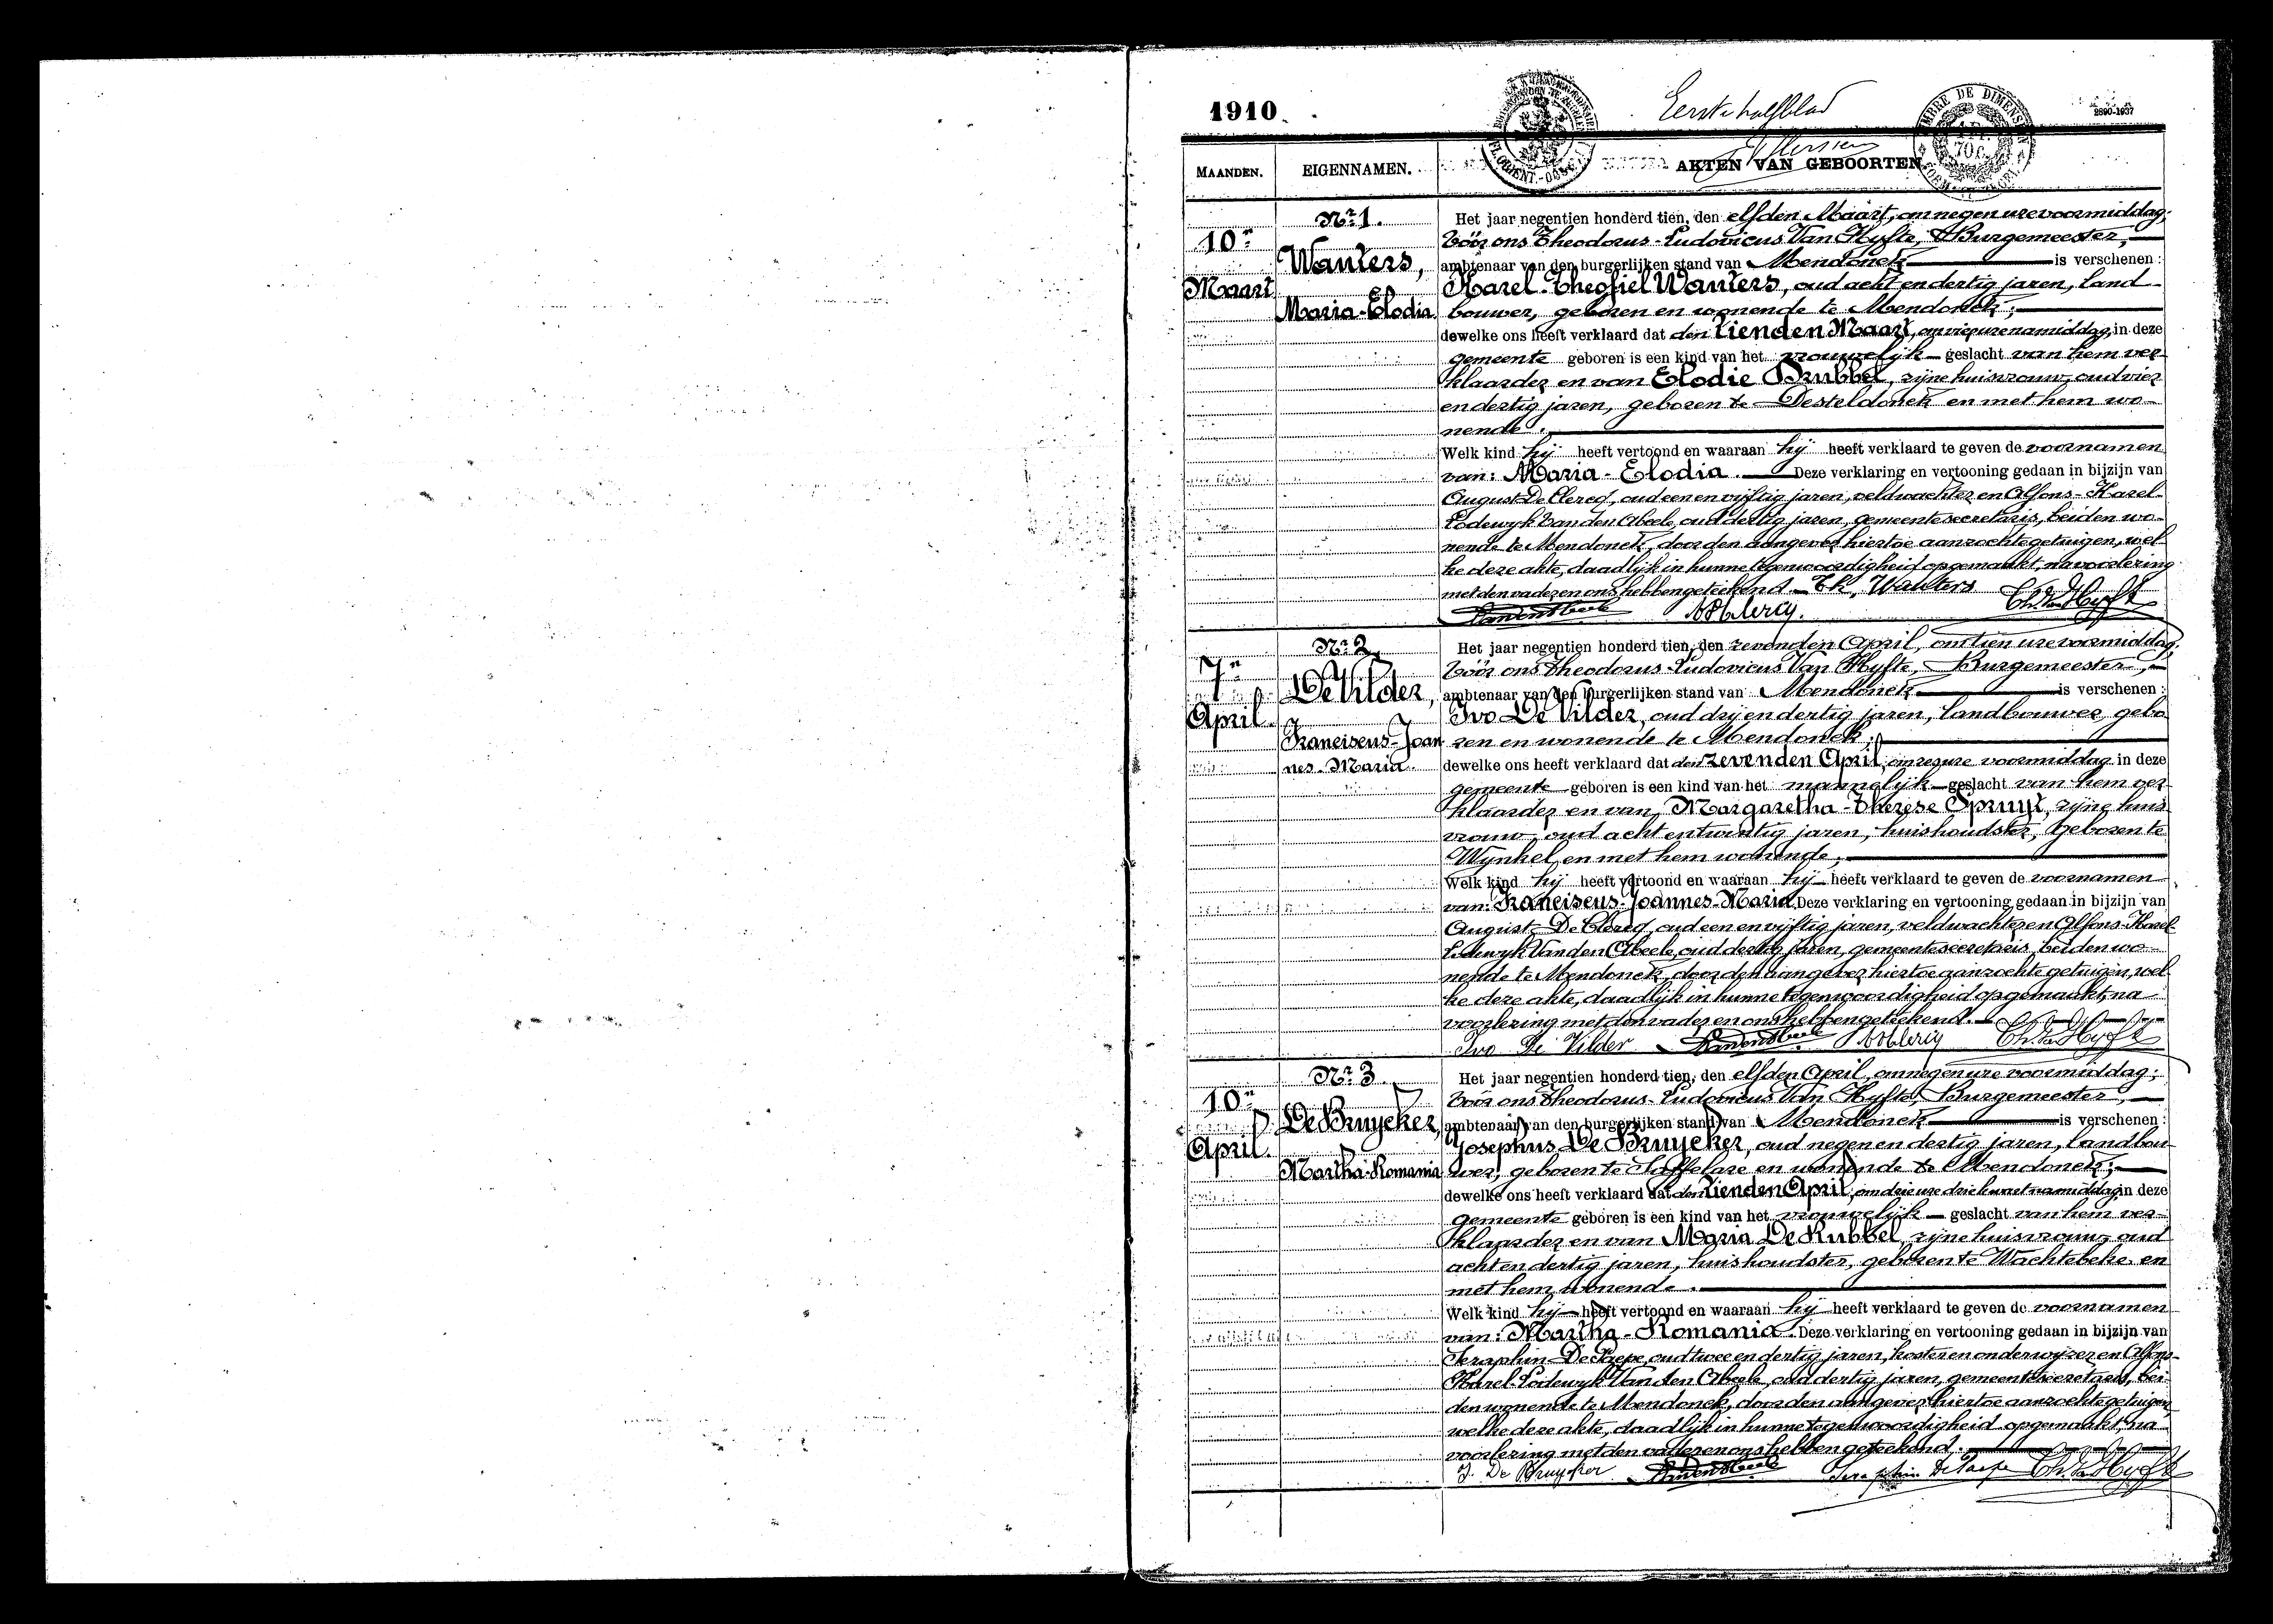 1910
Eerste halfblad
2890-1937
TIMBRE DE DIMENSION
MAANDEN.
EIGENNAMEN.
AKTEN VAN GEBOORTEN
Nr 1.
10n
Maart
Wauters,
Maria-Elodia
Het jaar negentien honderd tien, den elfden Maart, om negen ure voormiddag,
Vóór ons Theodorus-Ludovicus Van Hyfte, Burgemeester,
ambtenaar van den burgerlijken stand van Mendonck is verschenen:
Karel-Theofiel Wauters, oud acht en dertig jaren, land
bouwer, geboren en wonende te Mendonck;
dewelke ons heeft verklaard dat den tienden Maart, om vier ure namiddag, in deze
gemeente geboren is een kind van het vrouwelijk geslacht van hem ver-
klaarder en van Elodie Brubbel, zijne huisvrouw, oud vier
en dertig jaren, geboren te Desteldonck en met hem wo-
nende.
Welk kind hij heeft vertoond en waaraan hij heeft verklaard te geven de voornamen
van: Maria-Elodia. Deze verklaring en vertooning gedaan in bijzijn van
August De Clercq, oud een en vijftig jaren, veldwachter en Alfons-Karel-
Lodewyk Van den Abeele, oud dertig jaren, gemeentesecretaris, beiden wo-
nende te Mendonck, door den aangever hiertoe aanzochte getuigen, wel-
ke deze akte, daadlijk in hunne tegenwoordigheid opgemaakt, na voorlezing
met den vader en ons hebben geteekend. Wauters
Vandenabeele A De Clercq. Th. Van Hyfte
Nr 2.
7n
April.
De Vilder,
Franciscus-Joan
nes-Maria.
Het jaar negentien honderd tien, den zevenden April, om tien ure voormiddag,
Vóór ons Theodorus-Ludovicus Van Hyfte, Burgemeester,
ambtenaar van den burgerlijken stand van Mendonck is verschenen:
Ivo De Vilder, oud drij en dertig jaren, landbouwer, gebo
ren en wonende te Mendonck;
dewelke ons heeft verklaard dat den zevenden April, om zes ure voormiddag in deze
gemeente geboren is een kind van het mannelijk geslacht van hem ver-
klaarder en van Margaretha-Therese Spruyt, zijne huis
vrouw, oud acht en twintig jaren, huishoudster, geboren te
Wynkel en met hem wonende;
Welk kind hij heeft vertoond en waaraan hij heeft verklaard te geven de voornamen
van: Franciscus-Joannes-Maria. Deze verklaring en vertooning gedaan in bijzijn van
August De Clercq, oud een en vijftig jaren, veldwachter en Alfons-Karel-
Lodewyk Van den Abeele, oud dertig jaren, gemeentesecretaris, beiden wo-
nende te Mendonck, door den aangever hiertoe aanzochte getuigen, wel-
ke deze akte, daadlijk in hunne tegenwoordigheid opgemaakt, na
voorlezing met den vader en ons hebben geteekend.
Ivo De Vilder Vandenabeele A De Clercq Th. Van Hyfte
Nr 3.
10n
April.
De Bruycker,
Martha-Romania
Het jaar negentien honderd tien, den elfden April, om negen ure voormiddag;
Vóór ons Theodorus-Ludovicus Van Hyfte, Burgemeester,
ambtenaar van den burgerlijken stand van Mendonck is verschenen:
Josephus De Bruycker, oud negen en dertig jaren, landbou
wer, geboren te Saffelare en wonende te Mendonck;
dewelke ons heeft verklaard dat den tienden April, om drie ure drie kwart namiddag in deze
gemeente geboren is een kind van het vrouwelijk geslacht van hem ver-
klaarder en van Maria De Kubbel, zijne huisvrouw, oud
acht en dertig jaren, huishoudster, geboren te Wachtebeke en
met hem wonende.
Welk kind hij heeft vertoond en waaraan hij heeft verklaard te geven de voornamen
van: Martha-Romania. Deze verklaring en vertooning gedaan in bijzijn van
Seraphin De Paepe, oud twee en dertig jaren, koster en onderwijzer en Alfons-
Karel-Lodewyk Van den Abeele, oud dertig jaren, gemeentesecretaris, bei-
den wonende te Mendonck, door den aangever hiertoe aanzochte getuigen,
welke deze akte, daadlijk in hunne tegenwoordigheid opgemaakt, na
voorlezing met den vader en ons hebben geteekend.
J. De Bruycker Vandenabeele Seraphin De Paepe Th. Van Hyfte